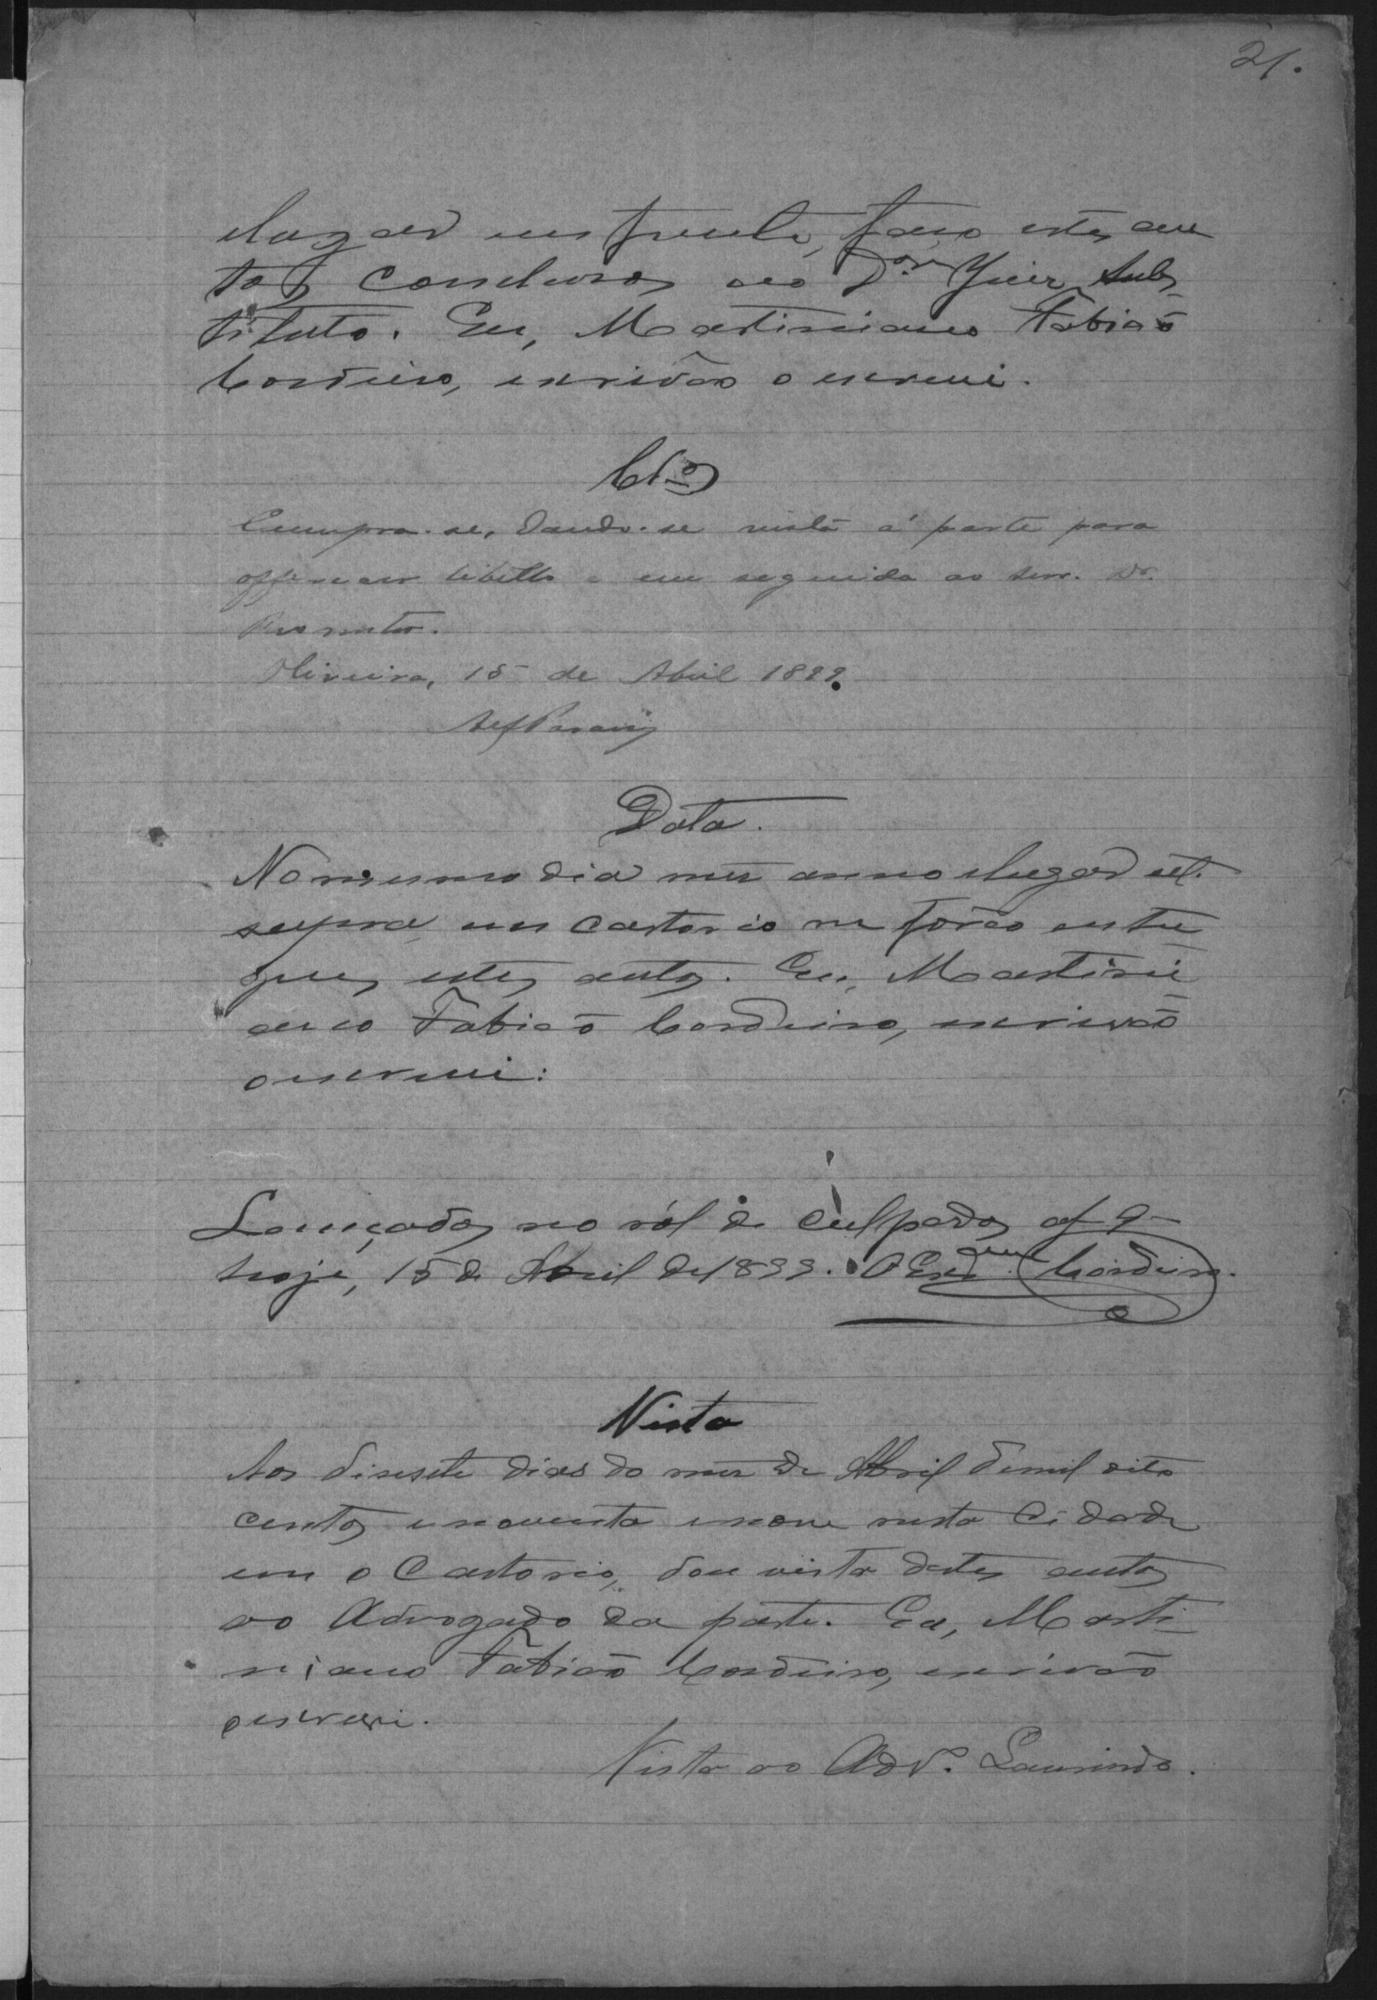 21.
e lugar em frente, faço estes au
tos conclusos ao Dor Juiz Subs-
tituto. Eu, Martiniano Fabião
Cordeiro, escrivão o escrevi.
Clos
Cumpra-se, dando-se vista á parte para
offerecer libello e em seguida ao sen. Dr.
Promotor.
Oliveira, 15 de Abril 1899.
Data.
No mesmo dia mez anno e lugar ut
supra em cartorio me forão entre
gues estes autos. Eu, Martini
ano Fabião Cordeiro, escrivão
o escrevi:
Lançados no ról de culpados af 9
hoje, 15 de Abril de 1899. O Escram Cordeiro.
Vista
Aos disesete dias do mez de Abril de mil oito
centos e noventa e nove nesta Cidade
em o Cartorio, dou vista destes autos
ao Advogado da parte. Eu, Marti-
niano Fabião Cordeiro, escrivão
o escrevi.
Vista ao Advo. Laurindo.